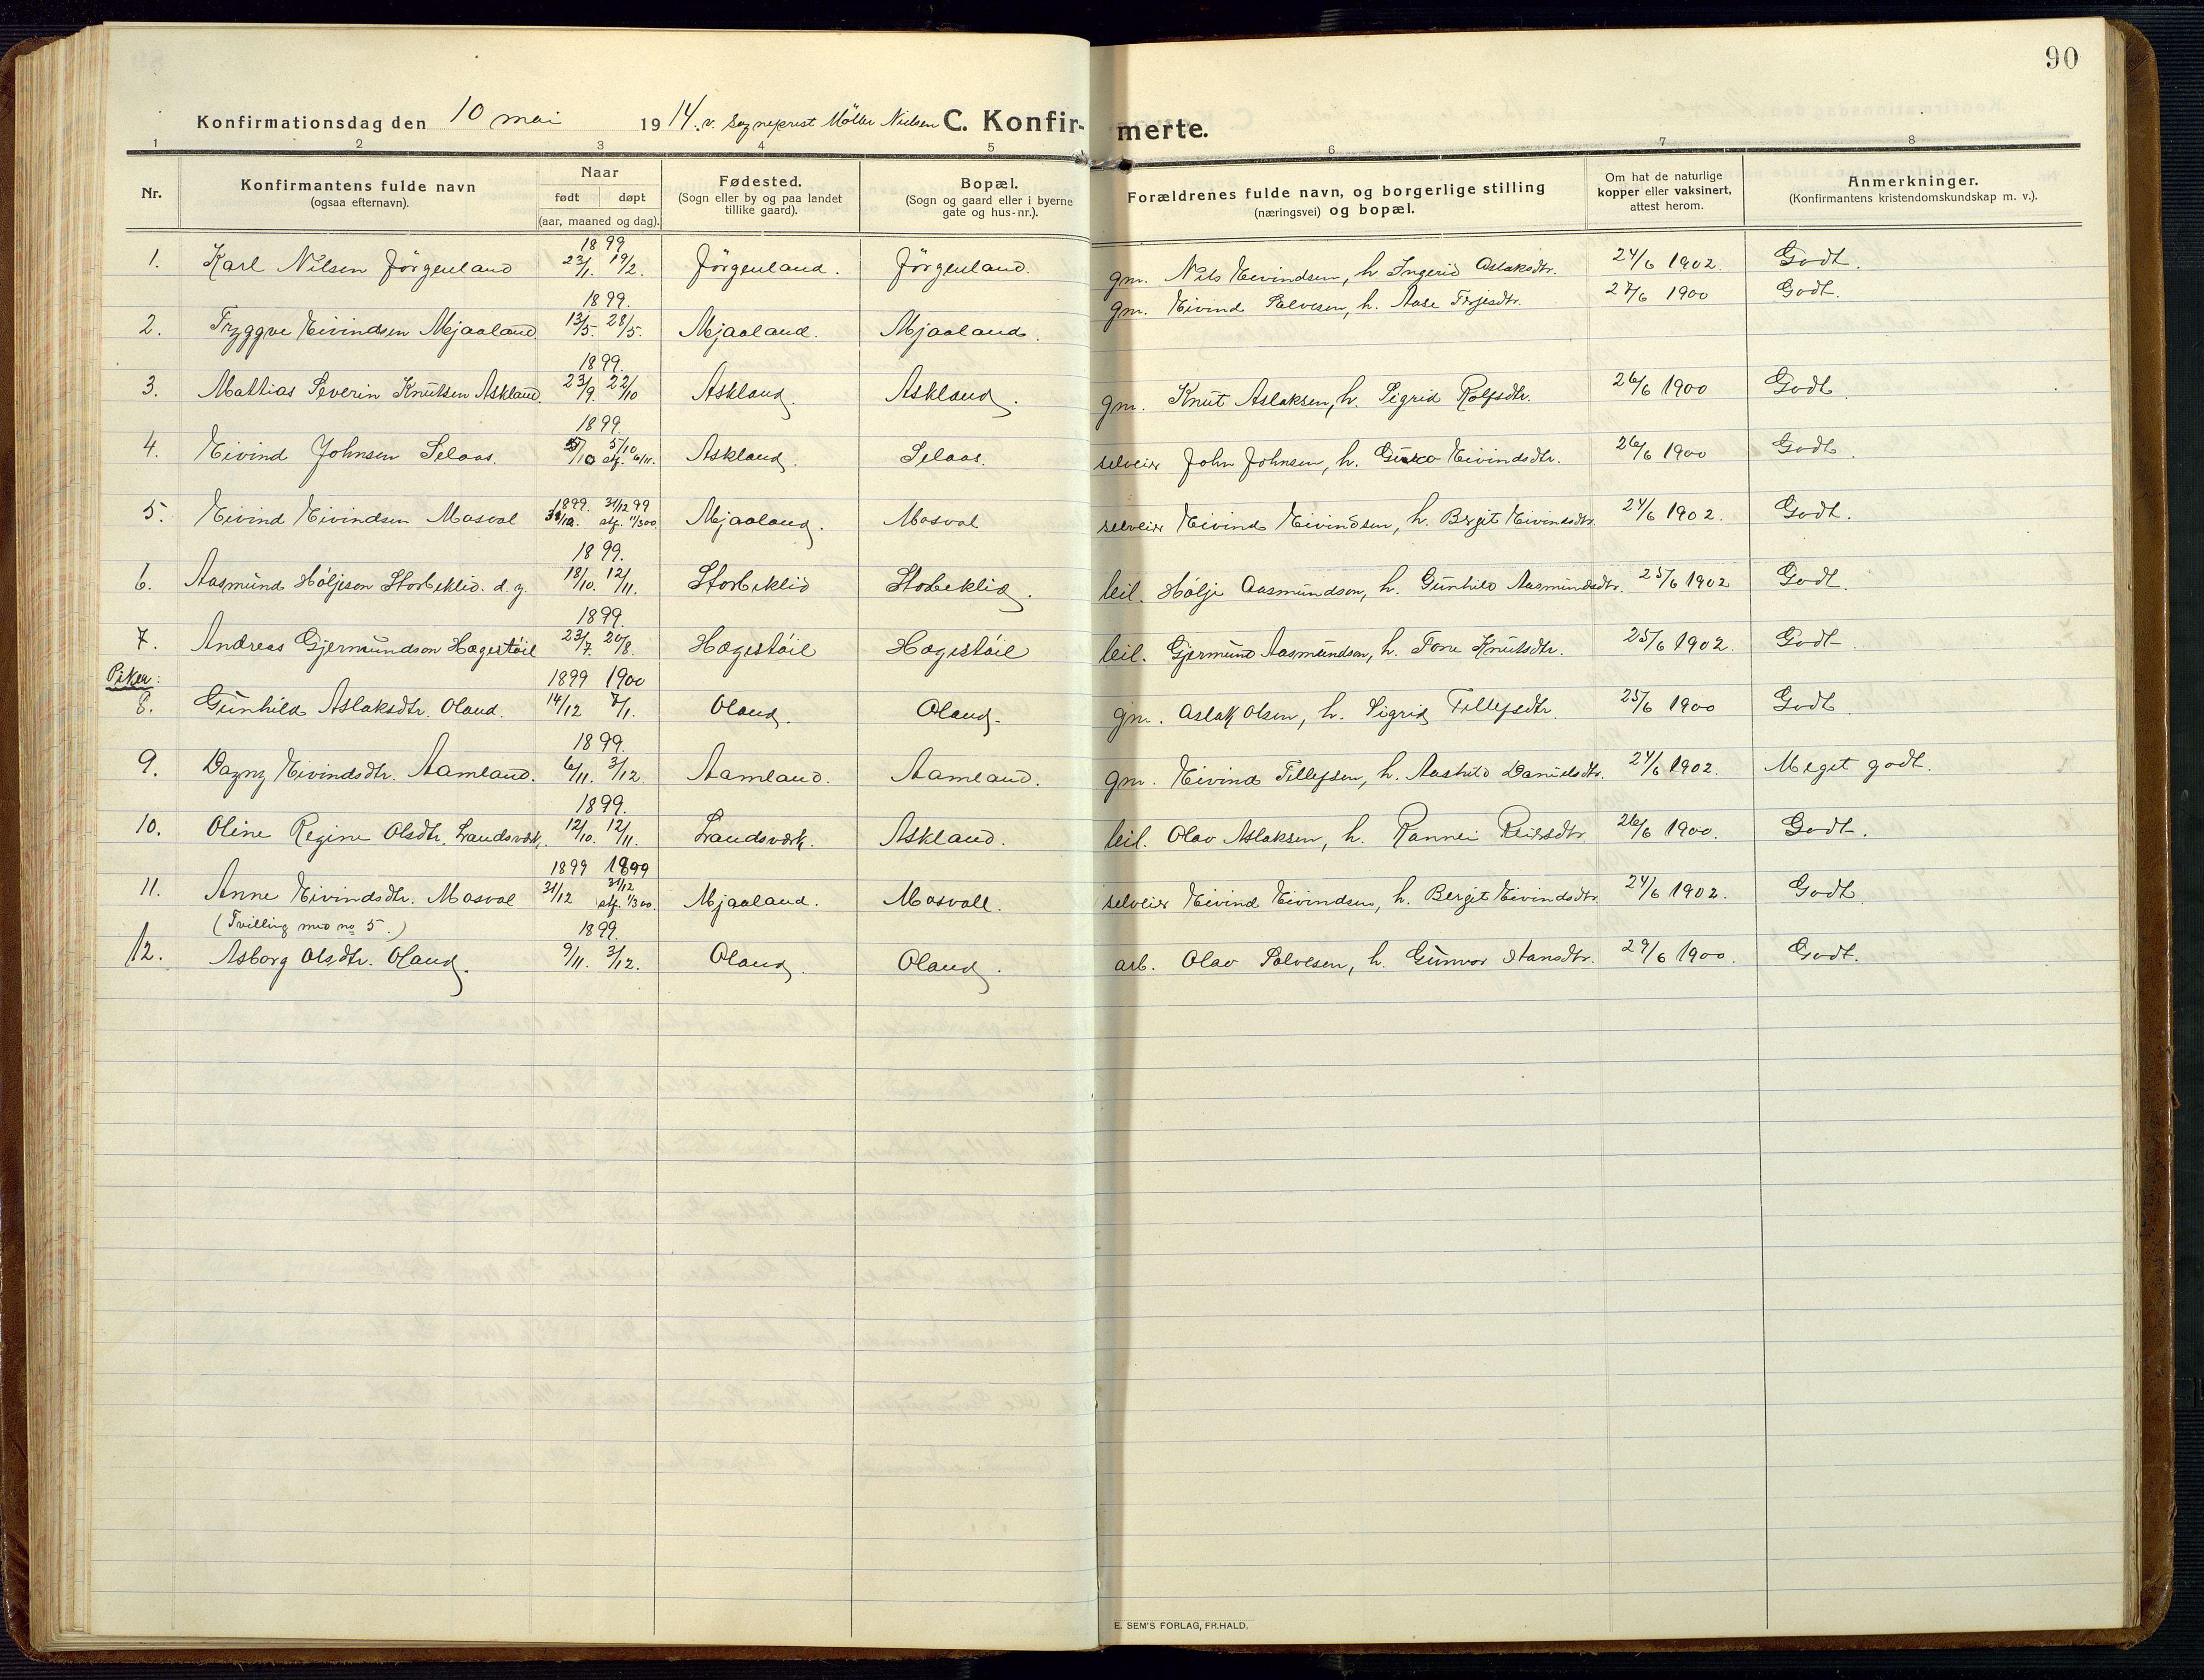 90
Konfirmationsdag den 10 mai 1914. v. Sogneprest Möller Nielsen C. Konfir- merte.
1 2 3 4 5 6 7 8
Nr. Konfirmantens fulde navn (ogsaa efternavn). Naar født døpt (aar, maaned og dag). Fødested. (Sogn eller by og paa landet tillike gaard). Bopæl. (Sogn og gaard eller i byerne gate og hus-nr.). Forældrenes fulde navn, og borgerlige stilling (næringsvei) og bopæl. Om hat de naturlige kopper eller vaksinert, attest herom. Anmerkninger. (Konfirmantens kristendomskundskap m. v.).
1899
1. Karl Nilsen Jörgenland 23/1. 19/2. Jörgenland. Jörgenland. gm. Nils Eivindsen, h. Ingerid Aslaksdtr. 24/6 1902. Godt.
1899.
2. Tryggve Eivindsen Mjaaland. 13/5. 28/5. Mjaaland. Mjaaland. gm. Eivind Salvesen, h. Aase Terjesdtr. 27/6 1900 Godt.
1899.
3. Mathias Severin Knutsen Askland. 23/9. 22/10 Askland. Askland. gm. Knut Aslaksen, h. Sigrid Rolfsdtr. 26/6 1900 Godt.
1899.
4. Eivind Johnsen Selaas. 5/10 5/10 stf. 6/11. Askland. Selaas. selveier John Johnsen, h. Eivindsdtr. 26/6 1900 Godt.
1899. 31/12 99
5. Eivind Eivindsen Mosvol 31/12. stf. 11/3 00. Mjaaland. Mosvol selveier Eivind Eivindsen, h. Bergit Eivindsdtr. 24/6 1902. Godt.
1899.
6. Aasmund Höljeson Storbeklid. d. y. 18/10. 12/11. Storbeklid Storbeklid. leil. Hölje Aasmundson, h. Gunhild Aasmundsdtr. 25/6 1902 Godt
1899.
7. Andreas Gjermundson Hægestöil 23/7. 20/8. Hægestöil Hægestöil leil. Gjermund Aasmundson, h. Tone Knutsdtr. 25/6 1902. Godt
Piker:
1899 1900
8. Gunhild Aslaksdtr. Oland. 14/12 7/1. Oland. Oland. gm. Aslak Olsen, h. Sigrid Tellefsdtr. 25/6 1900 Godt
1899.
9. Dagny Eivindsdtr. Aamland. 6/11. 3/12. Aamland. Aamland. gm. Eivind Tellefsen, h. Aashild Danielsdtr. 24/6 1902. Meget godt.
1899.
10. Oline Regine Olsdtr. Landsværk. 12/10. 12/11. Landsværk. Askland. leil. Olav Aslaksen, h. Rannei Reiersdtr. 26/6 1900. Godt.
1899 1899
11. Anne Eivindsdtr. Mosvol 31/12 31/12 stf. 11/3 00. Mjaaland. Mosvoll. selveier Eivind Eivindsen, h. Bergit Eivindsdtr. 24/6 1902. Godt
(Tvilling med no 5.) 1899.
12. Asborg Olsdtr. Oland. 9/11. 3/12. Oland. Oland. arb. Olav Salvesen, h. Gunvor Hansdtr. 29/6 1900. Godt.
E. SEM'S FORLAG, FR.HALD.